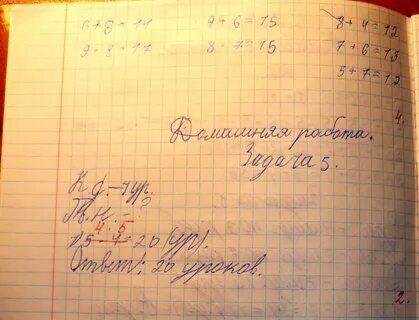 6 + 8 = 14 9 + 6 = 15 8 + 4 = 12
9 + 8 = 17 8 + 7 = 15 7 + 6 = 13
5 + 7 = 12
4.
Домашняя работа.
Задача 5.
К. д. – 4 ур.
– ?
4 5
5 4 = 20 (ур).
Ответ: 20 уроков.
2.